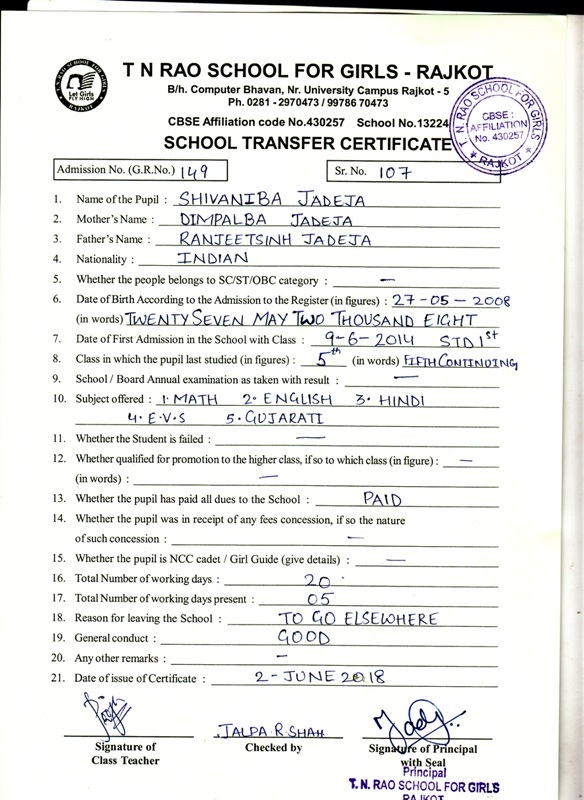 T N RAO SCHOOL FOR GIRLS
Let Girls
FLY HIGH
RAJKOT
T N RAO SCHOOL FOR GIRLS - RAJKOT
B/h. Computer Bhavan, Nr. University Campus Rajkot - 5
Ph. 0281 - 2970473 / 99786 70473
CBSE Affiliation code No.430257 School No.13224
SCHOOL TRANSFER CERTIFICATE
T. N. RAO SCHOOL FOR GIRLS
CBSE :
AFFILIATION
No. 430257
★ RAJKOT ★
Admission No. (G.R.No.) 149 Sr. No. 107
1. Name of the Pupil : SHIVANIBA JADEJA
2. Mother's Name : DIMPALBA JADEJA
3. Father's Name : RANJEETSINH JADEJA
4. Nationality : INDIAN
5. Whether the people belongs to SC/ST/OBC category : —
6. Date of Birth According to the Admission to the Register (in figures) : 27-05-2008
(in words) TWENTY SEVEN MAY TWO THOUSAND EIGHT
7. Date of First Admission in the School with Class : 9-6-2014 STD 1st
8. Class in which the pupil last studied (in figures) : 5th (in words) FIFTH CONTINUING
9. School / Board Annual examination as taken with result : —
10. Subject offered : 1. MATH 2. ENGLISH 3. HINDI
4. E.V.S 5. GUJARATI
11. Whether the Student is failed : —
12. Whether qualified for promotion to the higher class, if so to which class (in figure) : —
(in words) : —
13. Whether the pupil has paid all dues to the School : PAID
14. Whether the pupil was in receipt of any fees concession, if so the nature
of such concession : —
15. Whether the pupil is NCC cadet / Girl Guide (give details) : —
16. Total Number of working days : 20
17. Total Number of working days present : 05
18. Reason for leaving the School : TO GO ELSEWHERE
19. General conduct : GOOD
20. Any other remarks : —
21. Date of issue of Certificate : 2-JUNE 2018
JALPA.R.SHAH
Signature of Checked by Signature of Principal
Class Teacher with Seal
Principal
T. N. RAO SCHOOL FOR GIRLS
RAJKOT